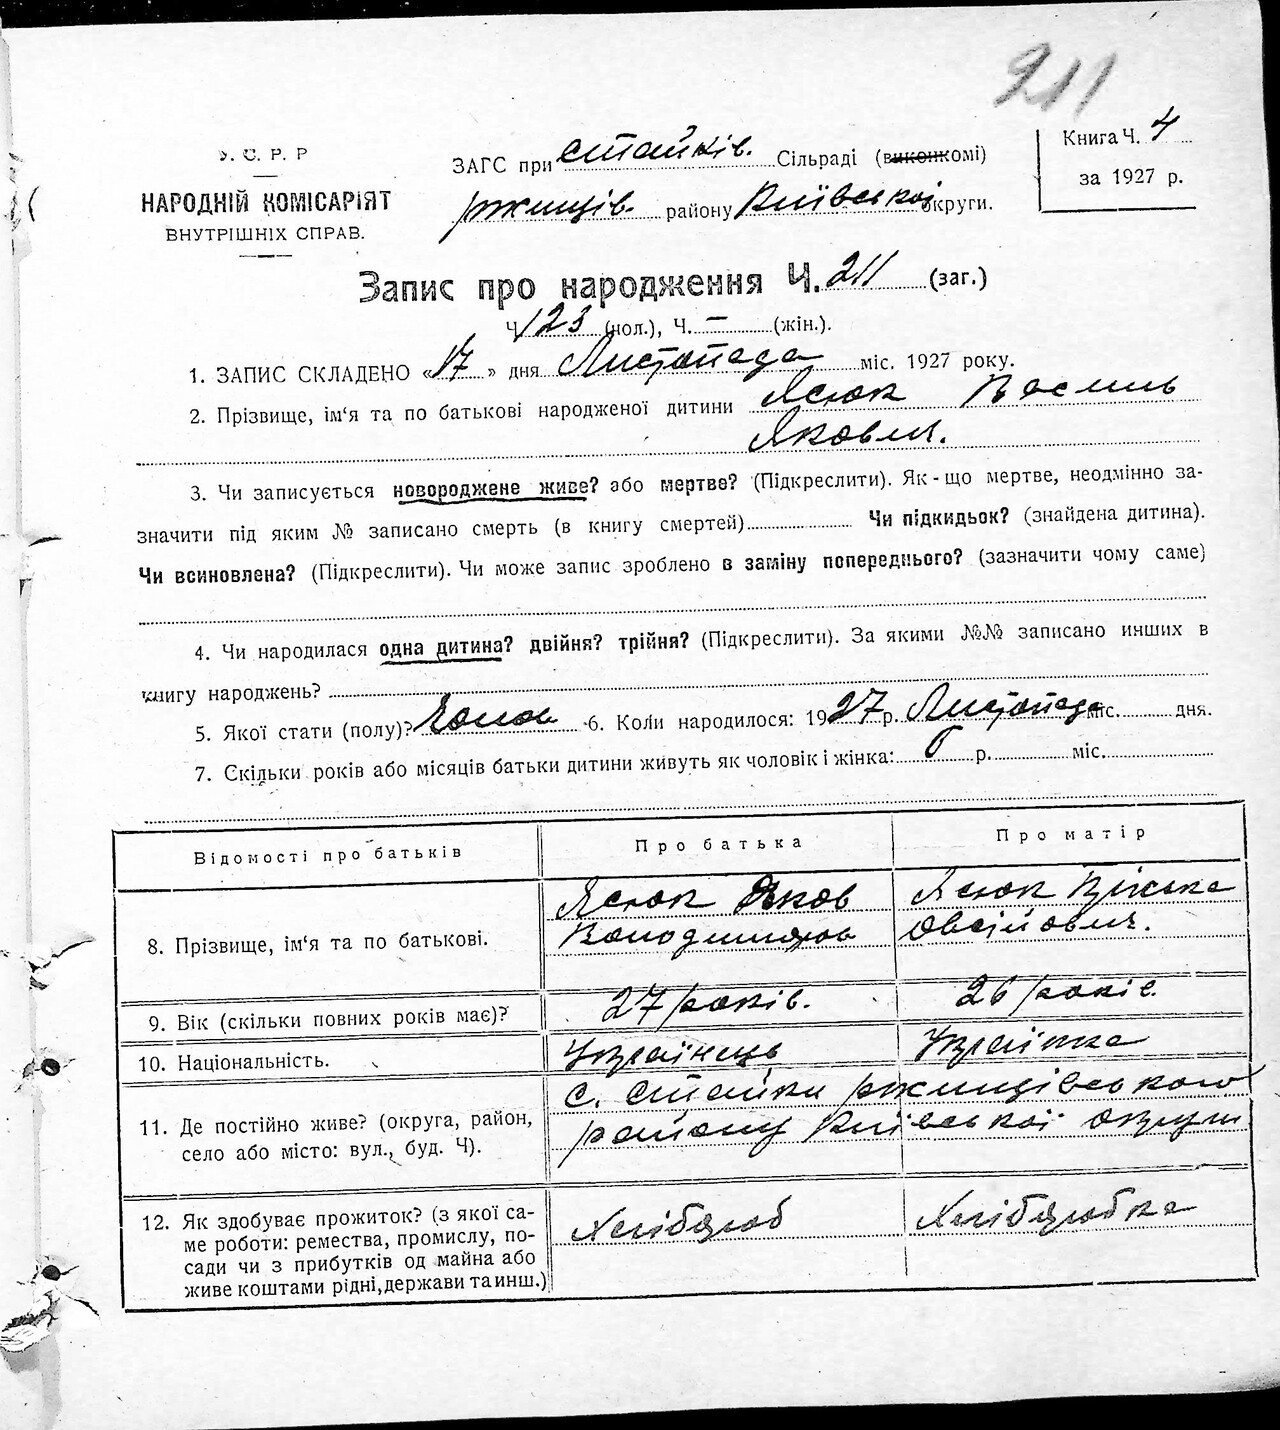 211
У. С. Р. Р
НАРОДНІЙ КОМІСАРІЯТ
ВНУТРІШНІХ СПРАВ.
ЗАГС при Стайків. Сільраді (виконкомі)
ржищів. району Київської округи.
Книга Ч. 4
за 1927 р.
Запис про народження Ч. 211 (заг.)
Ч 123 (чол.), Ч. — (жін.).
1. ЗАПИС СКЛАДЕНО «17» дня Листопада міс. 1927 року.
2. Прізвище, ім'я та по батькові народженої дитини Ясюк Василь
Яковл.
3. Чи записується новороджене живе? або мертве? (Підкреслити). Як-що мертве, неодмінно за-
значити під яким № записано смерть (в книгу смертей) Чи підкидьок? (знайдена дитина).
Чи всиновлена? (Підкреслити). Чи може запис зроблено в заміну попереднього? (зазначити чому саме)
4. Чи народилася одна дитина? двійня? трійня? (Підкреслити). За якими №№ записано инших в
книгу народжень?
5. Якої стати (полу)? 6. Коли народилося: 1927 р. Листопада міс. дня.
7. Скільки років або місяців батьки дитини живуть як чоловік і жінка: 6 р. міс.
Відомості про батьків Про батька Про матір
8. Прізвище, ім'я та по батькові.
Ясюк Яков
Володимиров
Ясюк
Овсійовна.
9. Вік (скільки повних років має)? 27 років. 26 років.
10. Національність. Українець Українка
11. Де постійно живе? (округа, район,
село або місто: вул., буд. Ч).
с. Стайки ржищівського
району Київської округи
12. Як здобуває прожиток? (з якої са-
ме роботи: ремества, промислу, по-
сади чи з прибутків од майна або
живе коштами рідні, держави та инш.)
Хлібороб Хліборобка